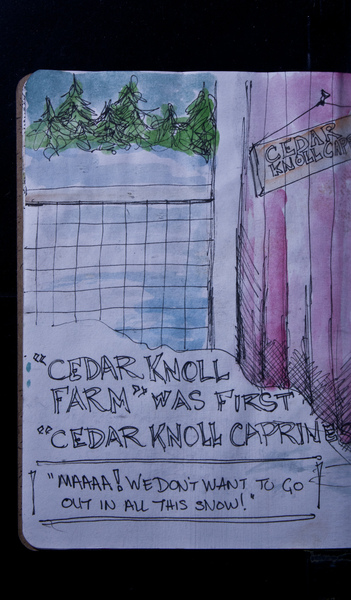 CEDAR
KNOLL CAP
"CEDAR KNOLL
FARM" WAS FIRST
"CEDAR KNOLL CAPRINE
"MAAAA! WE DON'T WANT TO GO
OUT IN ALL THIS SNOW!"